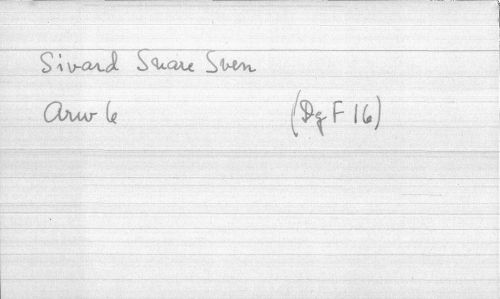 Sivard Snare Sven
Arw 6 (DgF 16)